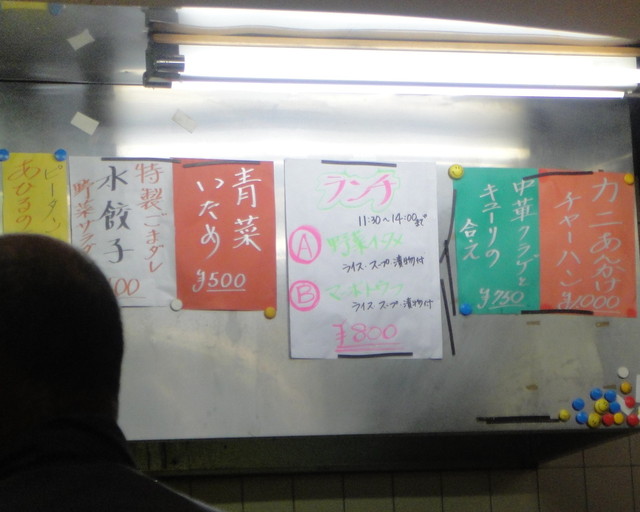 ピータン
あひるの
特製ごまダレ
水餃子
青菜
いため
¥500
ランチ
11:30〜14:00まで
Ⓐ 野菜イタメ
ライス・スープ・漬物付
Ⓑ マーボドウフ
ライス・スープ・漬物付
¥800
中華クラゲと
キューリの
合え
¥750
カニあんかけ
チャーハン
¥1000